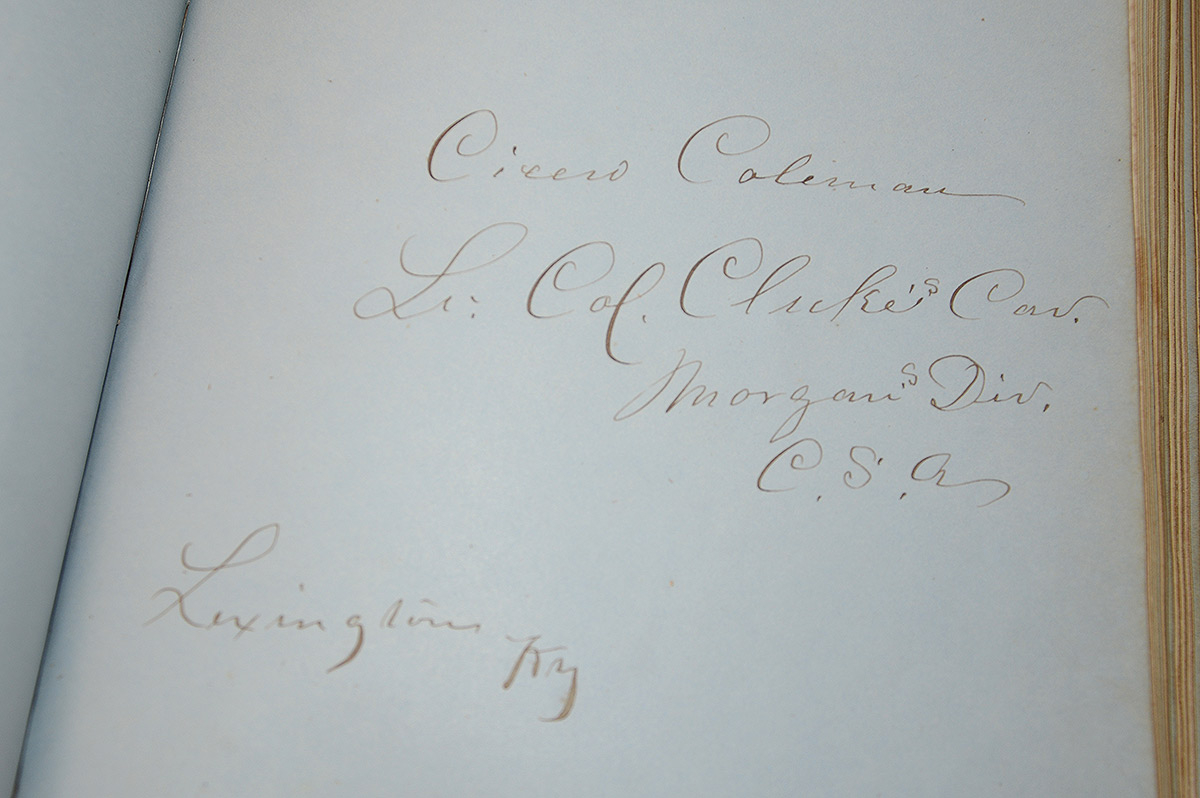 Cicero Coleman
Lt. Col. Cluke's Cav.
Morgan's Div.
C. S. A
Lexington
Ky